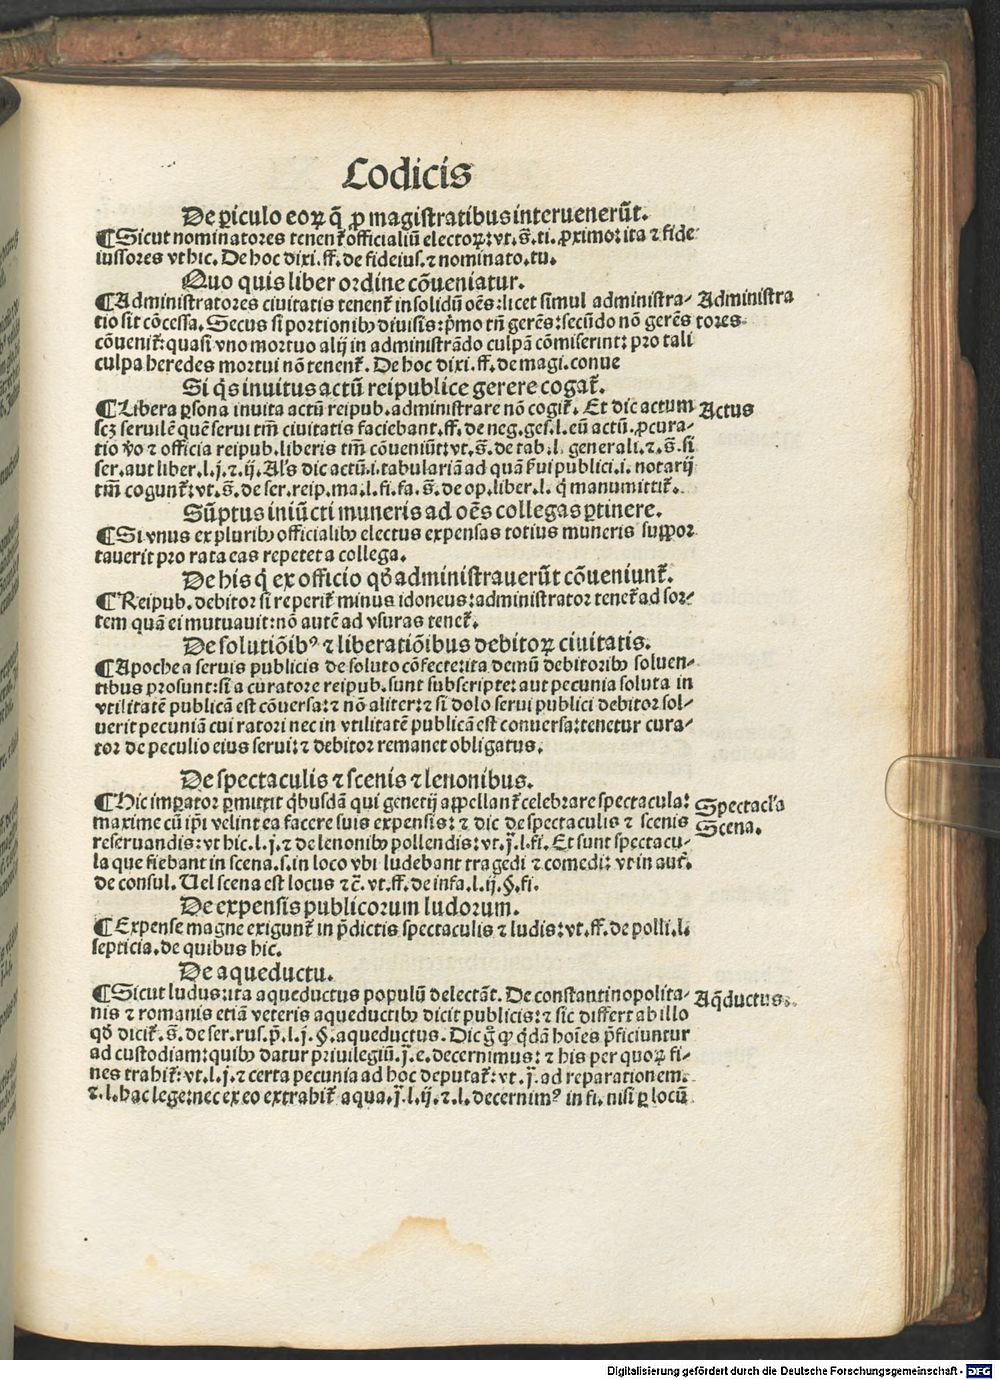 Codicis
De ꝑiculo eoꝝ q̄ ꝓ magistratibus interuenerūt.
¶Sicut nominatores tenent᷑ officialiū electoꝝ: vt.s̄.ti.ꝓximo: ita ⁊ fide
iussores vt hic. De hoc dixi.ff.de fideius.⁊ nominato.tu.
Quo quis liber ordine cōueniatur.
¶Administratores ciuitatis tenent᷑ in solidū oēs: licet simul administra-
Administra
tio sit cōcessa. Secus si portionibꝫ diuisis: p̄mo tn̄ gerēs: secūdo nō gerēs
tores.
cōuenit᷑: quasi vno mortuo alij in administrādo culpā cōmiserint: pro tali
culpa heredes mortui nō tenent᷑. De hoc dixi.ff.de magi.conue
Si q̇s inuitus actū reipublice gerere cogat᷑.
¶Libera ꝑsona inuita actū reipub.administrare nō cogit᷑. Et dic actum
Actus
scꝫ seruilē quē serui tm̄ ciuitatis faciebant.ff.de neg.ges.l.eū actū.ꝓcura-
tio v̄o ⁊ officia reipub.liberis tm̄ cōueniūt: vt.s̄.de tab.l.generali.⁊.s̄.si
ser.aut liber.l.j.⁊.ij. Al's dic actū.i.tabulariā ad quā ẜui publici.i.notarij
tm̄ cogunt᷑: vt.s̄.de ser.reip.ma.l.fi.fa.s̄.de op.liber.l.q̇ manumittit᷑.
Sūptus iniūcti muneris ad oēs collegas ꝑtinere.
¶Si vnus ex pluribꝫ officialibꝫ electus expensas totius muneris suppor
tauerit pro rata eas repetet a collega.
De his q̇ ex officio qd̓ administrauerūt cōueniunt᷑.
¶Reipub.debitor si reperit᷑ minus idoneus: administrator tenet᷑ ad sor-
tem quā ei mutuauit: nō autē ad vsuras tenet᷑.
De solutiōibꝰ ⁊ liberatiōibus debitoꝝ ciuitatis.
¶Apoche a seruis publicis de soluto cōfecte: ita demū debitoribꝫ soluen-
tibus prosunt: si a curatore reipub.sunt subscripte: aut pecunia soluta in
vtilitatē publicā est cōuersa: ⁊ nō aliter: ⁊ si dolo serui publici debitor sol-
uerit pecuniā cui ratori nec in vtilitatē publicā est conuersa: tenetur cura-
tor de peculio eius serui: ⁊ debitor remanet obligatus.
De spectaculis ⁊ scenis ⁊ lenonibus.
¶Hic imꝑator ꝑmittit q̇busdā qui genetij appellant᷑ celebrare spectacula:
Spectacl'a
maxime cū ip̄i velint ea facere suis expensis: ⁊ dic de spectaculis ⁊ scenis
Scena.
reseruandis: vt hic.l.j.⁊ de lenonibꝫ pollendis: vt.j̄.l.fi. Et sunt spectacu-
la que fiebant in scena.s.in loco vbi ludebant tragedi ⁊ comedi: vt in aut᷑.
de consul. Uel scena est locus ⁊ c̄. vt.ff.de infa.l.ij.§.fi.
De expensis publicorum ludorum.
¶Expense magne exigunt᷑ in p̄dictis spectaculis ⁊ ludis: vt.ff.de polli.l.
septicia.de quibus hic.
De aqueductu.
¶Sicut ludus: ita aqueductus populū delectāt. De constantinopolita-
Aq̄ductus.
nis ⁊ romanis etiā veteris aqueductibꝫ dicit publicis: ⁊ sic differt ab illo
qd̓ dicit᷑.s̄.de ser.rus.p̄.l.j.§.aqueductus. Dic g̊ ꝙ q̇dā hoīes p̄ficiuntur
ad custodiam: quibꝫ datur priuilegiū.j̄.e.decernimus: ⁊ his per quoꝝ fi-
nes trahit᷑: vt.l.j.⁊ certa pecunia ad hoc deputat᷑: vt.j̄.ad reparationem.
⁊.l.hac lege: nec ex eo extrahit᷑ aqua.j̄.l.ij.⁊.l.decernimꝰ in fi.nisi ꝑ locū
Digitalisierung gefördert durch die Deutsche Forschungsgemeinschaft - DFG